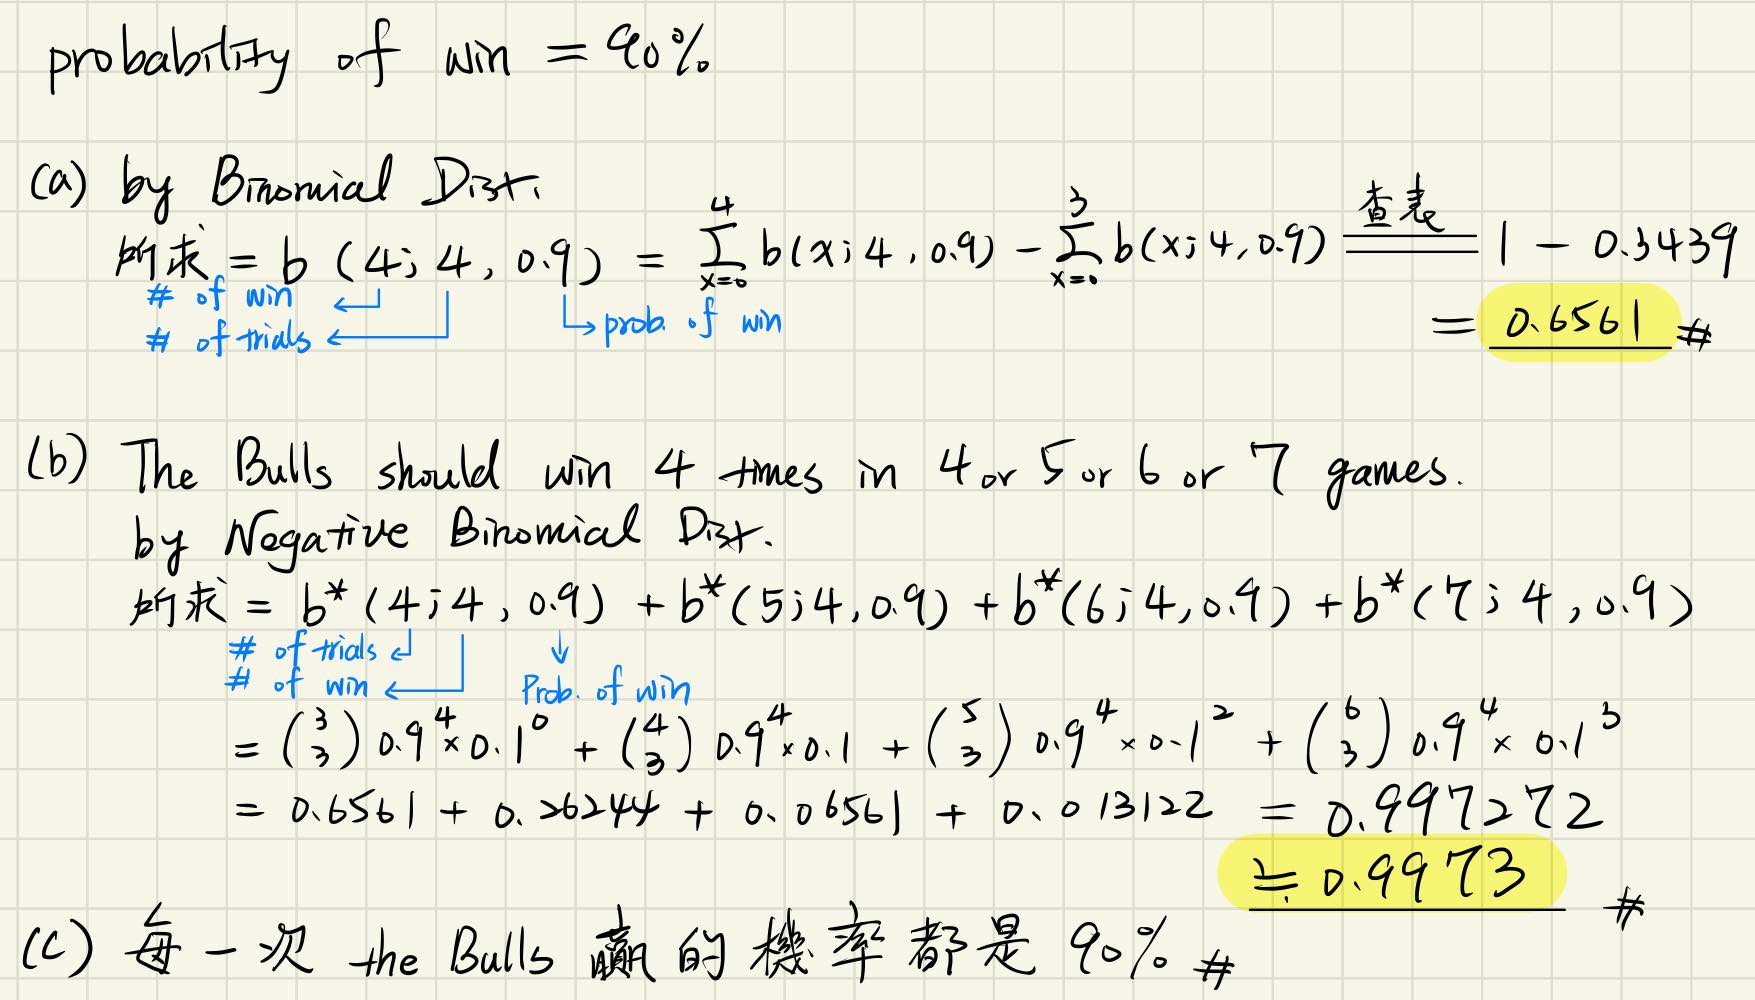 probability of win = 90%
(a) by Binomial Dist.
所求 = b (4; 4, 0.9) = ∑_{x=0}^{4} b(x; 4, 0.9) - ∑_{x=0}^{3} b(x; 4, 0.9) 查表 = 1 - 0.3439
# of win
# of trials
prob. of win
= 0.6561 #
(b) The Bulls should win 4 times in 4 or 5 or 6 or 7 games.
by Negative Binomial Dist.
所求 = b* (4; 4, 0.9) + b* (5; 4, 0.9) + b* (6; 4, 0.9) + b* (7; 4, 0.9)
# of trials
# of win
Prob. of win
= (3 3) 0.9^4 × 0.1^0 + (4 3) 0.9^4 × 0.1 + (5 3) 0.9^4 × 0.1^2 + (6 3) 0.9^4 × 0.1^3
= 0.6561 + 0.26244 + 0.06561 + 0.013122 = 0.997272
≒ 0.9973 #
(c) 每一次 the Bulls 贏的機率都是 90% #